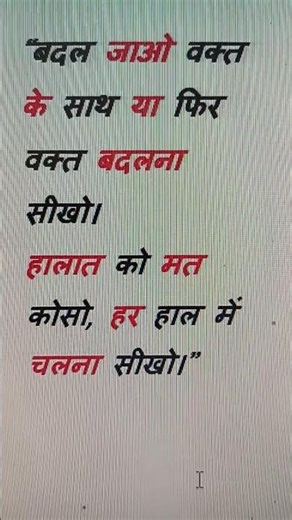 “बदल जाओ वक्त
के साथ या फिर
वक्त बदलना
सीखो।
हालात को मत
कोसो, हर हाल में
चलना सीखो।”